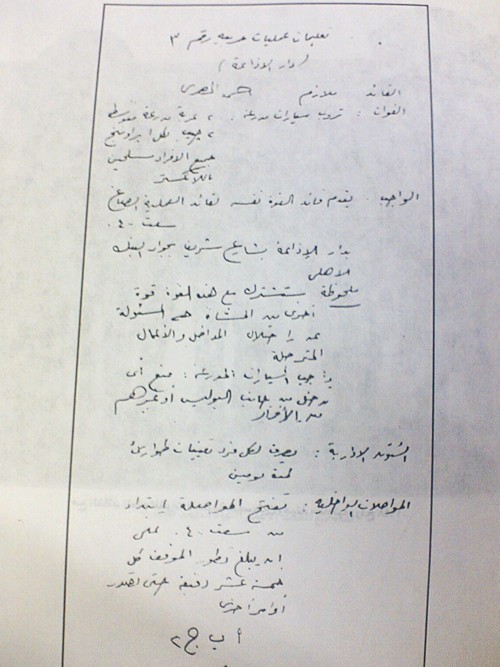 تعليمات عمليات حربيه رقم ٣
(دار الاذاعة)
القائد ملازم المصرى
القوات : تروب سيارات مدرعة . ٢ عربة مدرعة متوسطه
٢ جيب
جميع الافراد مسلحين
الواجب . يتقدم قائد القوة نفسه لقائد
سعت ٠٤٠٠
بدار الاذاعة بشارع شريف بجوار البنك
الاهلى
ملحوظة ستشترك مع هذه القوة قوة
أخرى من المشاة هى المسئولة
عن احتلال المداخل والأعمال
المترجلة
واجب السيارات المدرعة : منع أى
تدخل من جانب البوليس أو غيرهم
من الأفراد
الشئون الادارية : يصرف لكل فرد تعيينات طوارئ
لمدة يومين
المواصلات : تفتح المواصلة ابتداء
من سعت ٠٤٠٠ على
ان يبلغ تطور الموقف كل
خمسة عشر دقيقة حتى تصدر
أوامر أخرى
أ ب ج ٢